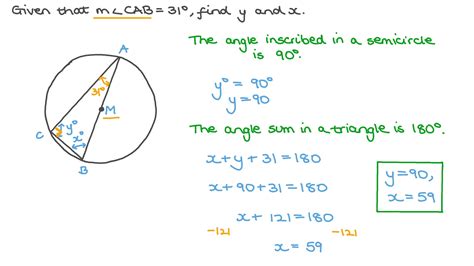 Given that m∠CAB = 31°, find y and x.
A
31°
M
C
y°
x°
B
The angle inscribed in a semicircle
is 90°.
y° = 90°
y = 90
The angle sum in a triangle is 180°.
x + y + 31 = 180
x + 90 + 31 = 180
x + 121 = 180
-121 -121
x = 59
y = 90,
x = 59